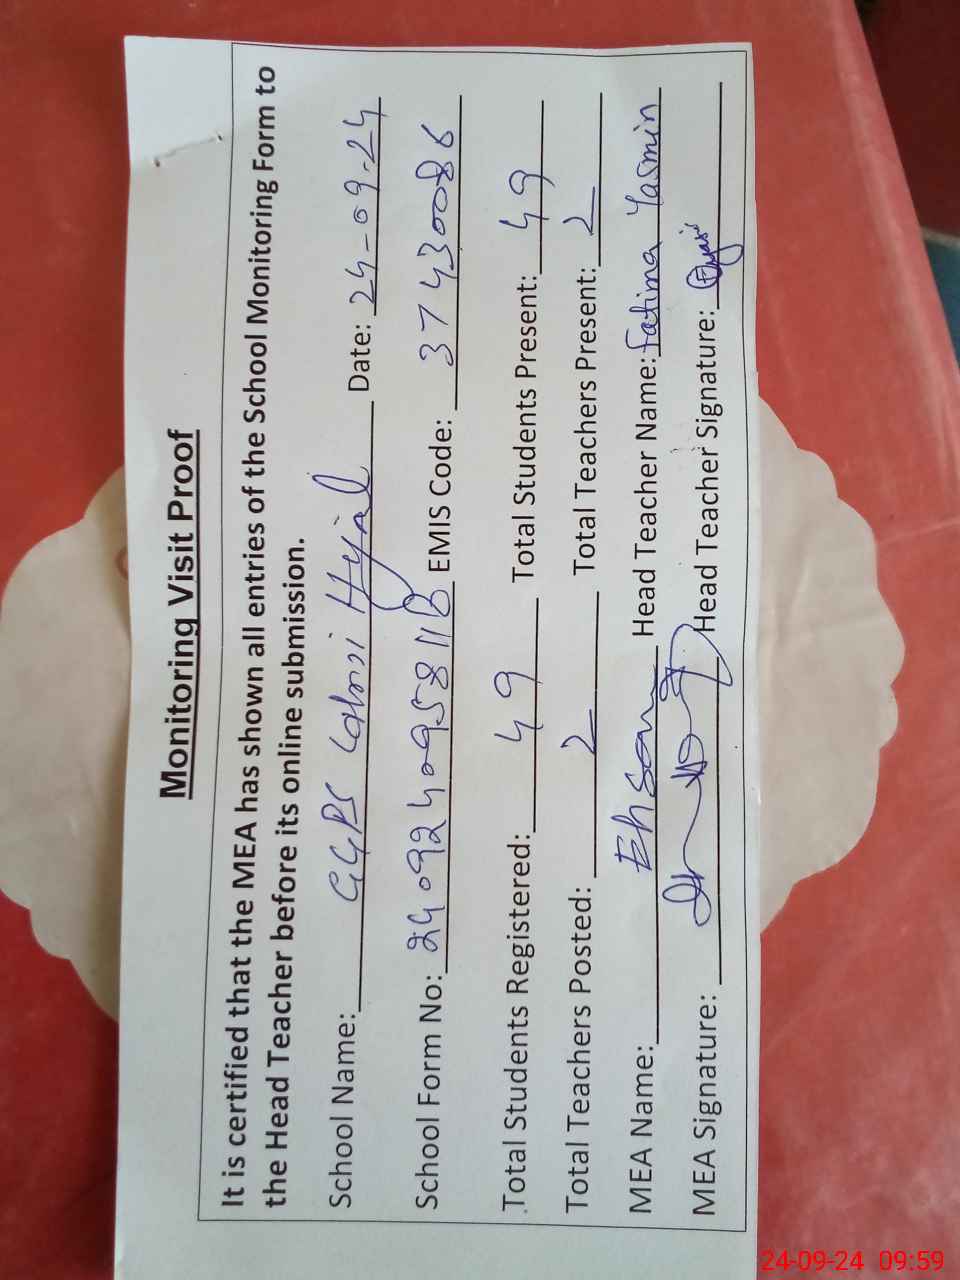 Monitoring Visit Proof
It is certified that the MEA has shown all entries of the School Monitoring Form to
the Head Teacher before its online submission.
School Name: GGPS Hyal Date: 24-09-24
School Form No: 240924095811B EMIS Code: 37430086
Total Students Registered: 49 Total Students Present: 49
Total Teachers Posted: 2 Total Teachers Present: 2
MEA Name: Ehsan Head Teacher Name: Fatima Yasmin
MEA Signature: Head Teacher Signature:
24-09-24 09:59